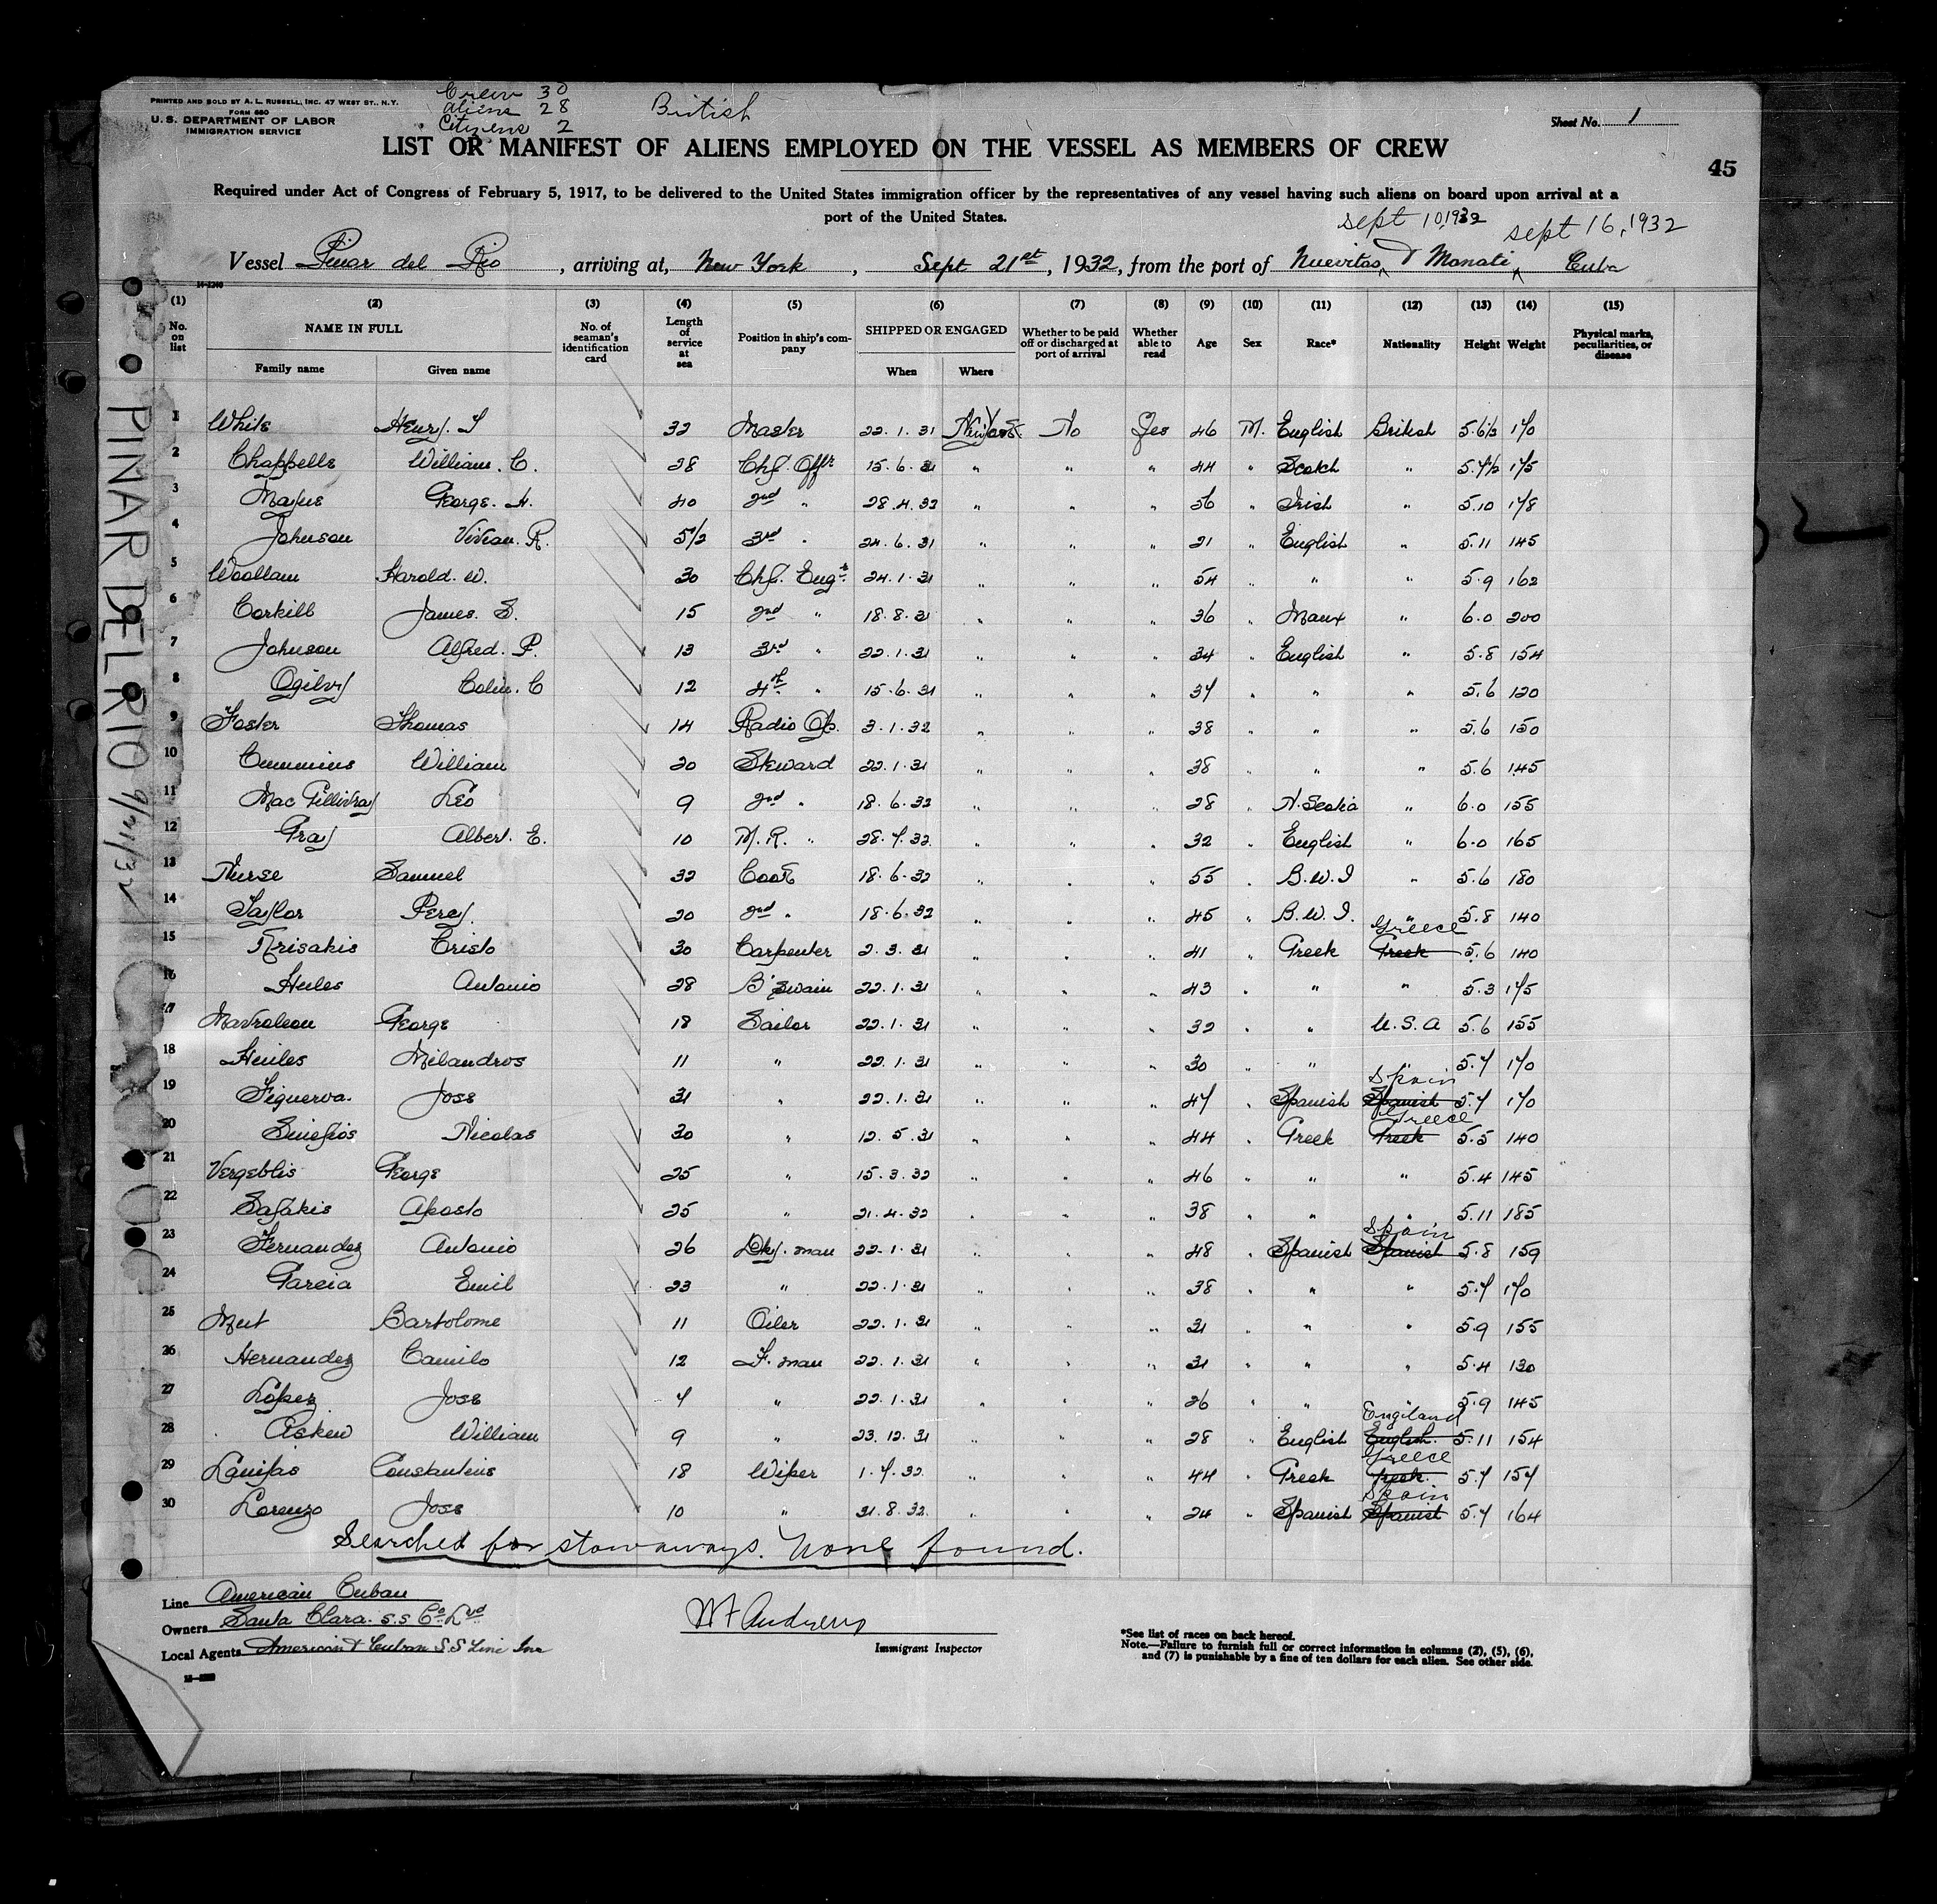 Crew 30
PRINTED AND SOLD BY A. L. RUSSELL, INC. 47 WEST ST., N.Y.
Aliens 28
British
FORM 680
U.S. DEPARTMENT OF LABOR
Citizens 2
Sheet No. 1
IMMIGRATION SERVICE
LIST OR MANIFEST OF ALIENS EMPLOYED ON THE VESSEL AS MEMBERS OF CREW
45
Required under Act of Congress of February 5, 1917, to be delivered to the United States immigration officer by the representatives of any vessel having such aliens on board upon arrival at a
port of the United States.
sept 10, 1932 sept 16, 1932
Vessel Pinar del Rio, arriving at, New York, Sept 21st, 1932, from the port of Nuevitas & Manati Cuba
(1) (2) (3) (4) (5) (6) (7) (8) (9) (10) (11) (12) (13) (14) (15)
No. on list NAME IN FULL No. of seaman's identification card Length of service at sea Position in ship's company SHIPPED OR ENGAGED Whether to be paid off or discharged at port of arrival Whether able to read Age Sex Race* Nationality Height Weight Physical marks, peculiarities, or disease
Family name Given name When Where
1 White Henry. T 32 Master 22.1.31 New York No Yes 46 M. English British 5.6½ 170
2 Chappelle William. C. 28 Chf. Offr 15.6.31 " " " 44 " Scotch " 5.7½ 175
3 Magee George. H. 40 2nd " 28.4.32 " " " 56 " Irish " 5.10 178
4 Johnson Vivian. R. 5½ 3rd " 24.6.31 " " " 21 " English " 5.11 145
5 Woollam Harold. W. 30 Chf. Engr. 24.1.31 " " " 54 " " " 5.9 162
6 Corkill James. S. 15 2nd " 18.8.31 " " " 36 " Manx " 6.0 200
7 Johnson Alfred. P. 13 3rd " 22.1.31 " " " 34 " English " 5.8 154
8 Ogilvy Colin. C 12 4th " 15.6.31 " " " 37 " " " 5.6 120
9 Foster Thomas 14 Radio Op. 3.1.32 " " " 38 " " " 5.6 150
10 Cummins William 20 Steward 22.1.31 " " " 38 " " " 5.6 145
11 Mac Gillivray Leo 9 2nd " 18.6.32 " " " 28 " N. Scotia " 6.0 155
12 Gray Albert. E. 10 M. R. " 28.7.32 " " " 32 " English " 6.0 165
13 Nurse Samuel 32 Cook 18.6.32 " " " 55 " B.W.I " 5.6 180
14 Taylor Percy. 20 2nd " 18.6.32 " " " 45 " B.W.I. " 5.8 140
15 Krisakis Cristo 30 Carpenter 2.3.31 " " " 41 " Greek Greek Greece 5.6 140
16 Hules Antonio 28 B'Swain 22.1.31 " " " 43 " " " 5.3 175
17 Mavroleon George 18 Sailor 22.1.31 " " " 32 " " U.S.A 5.6 155
18 Hules Milandros 11 " 22.1.31 " " " 30 " " " 5.7 170
19 Figuerva. Jose 31 " 22.1.31 " " " 47 " Spanish Spanish Spain 5.7 170
20 Nicolas 30 " 12.5.31 " " " 44 " Greek Greek Greece 5.5 140
21 Vergeblis George 25 " 15.3.32 " " " 46 " " " 5.4 145
22 Safakis Aposto 25 " 21.4.32 " " " 38 " " " 5.11 185
23 Fernandez Antonio 26 Dky. man 22.1.31 " " " 48 " Spanish Spanish Spain 5.8 159
24 Garcia Emil 23 " 22.1.31 " " " 38 " " " 5.7 170
25 Mut Bartolome 11 Oiler 22.1.31 " " " 31 " " " 5.9 155
26 Hernandez Camilo 12 F. man 22.1.31 " " " 31 " " " 5.4 130
27 Lopez Jose 7 " 22.1.31 " " " 26 " " " 5.9 145
28 Askew William 9 " 23.12.31 " " " 28 " English English. England 5.11 154
29 Constantinis 18 Wiper 1.7.32 " " " 44 " Greek Greek. Greece 5.7 157
30 Lorenzo Jose 10 " 31.8.32 " " " 24 " Spanish Spanish Spain 5.7 164
Searched for stowaways. None found.
Line American Cuban
Owners Santa Clara. S.S Co. Ltd
Local Agents American & Cuban S.S Line Inc
W F Andrews
Immigrant Inspector
*See list of races on back hereof.
Note.—Failure to furnish full or correct information in columns (2), (5), (6),
and (7) is punishable by a fine of ten dollars for each alien. See other side.
PINAR DEL RIO 9/21/32